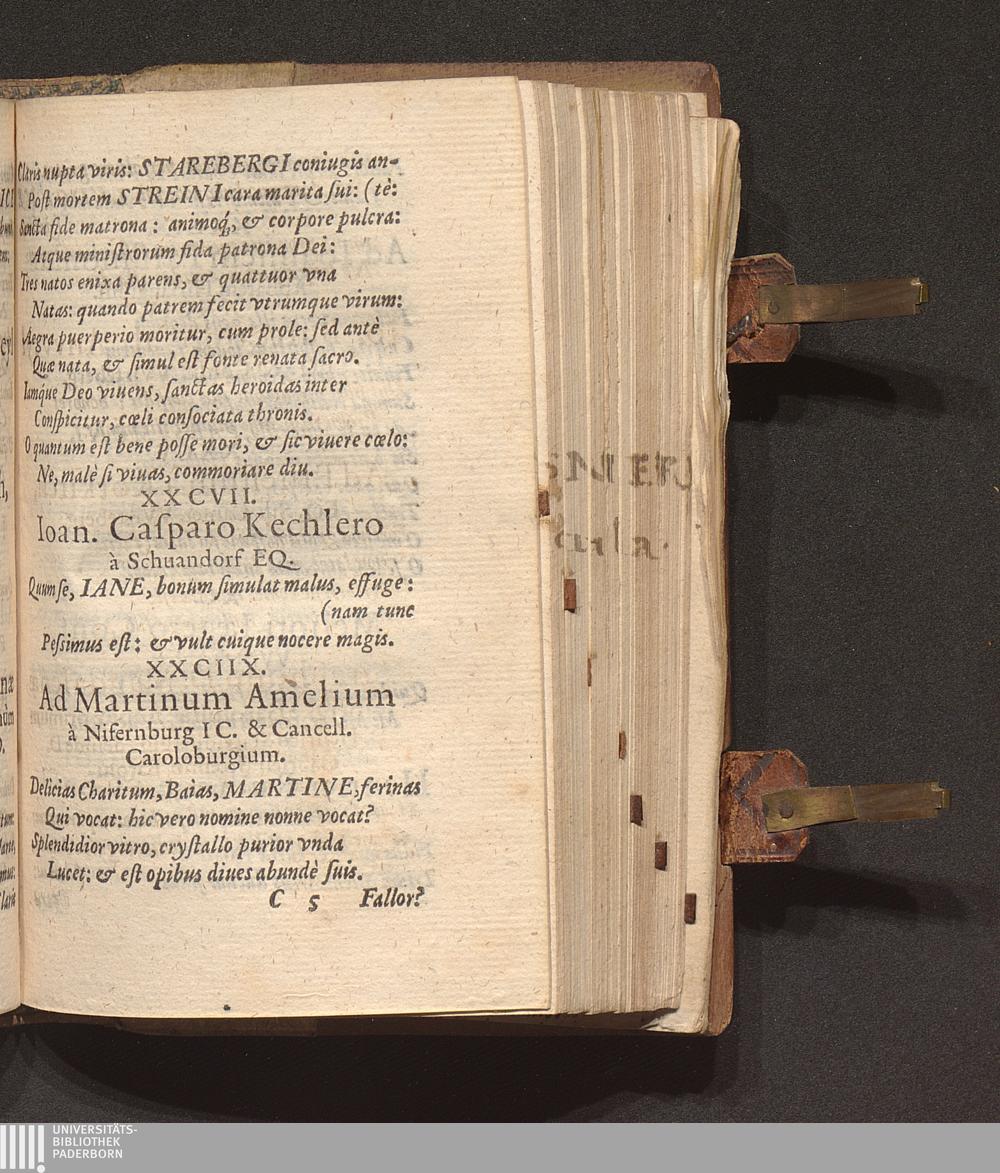 Claris nupta viris: STAREBERGI coniugis an-
Post mortem STREINI cara marita sui: (tè:
Sancta fide matrona: animoq́;, & corpore pulcra:
Atque ministrorum fida patrona Dei:
Tres natos enixa parens, & quattuor vna
Natas: quando patrem fecit vtrumque virum:
Aegra puerperio moritur, cum prole: sed antè
Quæ nata, & simul est fonte renata sacro.
Iamq́ue Deo viuens, sanctas heroidas inter
Conspicitur, cœli consociata thronis.
O quantum est bene posse mori, & sic viuere cœlo:
Ne, malè si viuas, commoriare diu.
XXCVII.
Ioan. Casparo Kechlero
à Schuandorf EQ.
Quum se, IANE, bonum simulat malus, effuge:
(nam tunc
Pessimus est: & vult cuique nocere magis.
XXCIIX.
Ad Martinum Amelium
à Nifernburg IC. & Cancell.
Caroloburgium.
Delicias Charitum, Baias, MARTINE, ferinas
Qui vocat: hic vero nomine nonne vocat?
Splendidior vitro, crystallo purior vnda
Lucet: & est opibus diues abundè suis.
C 5 Fallor?
UNIVERSITÄTS-
BIBLIOTHEK
PADERBORN